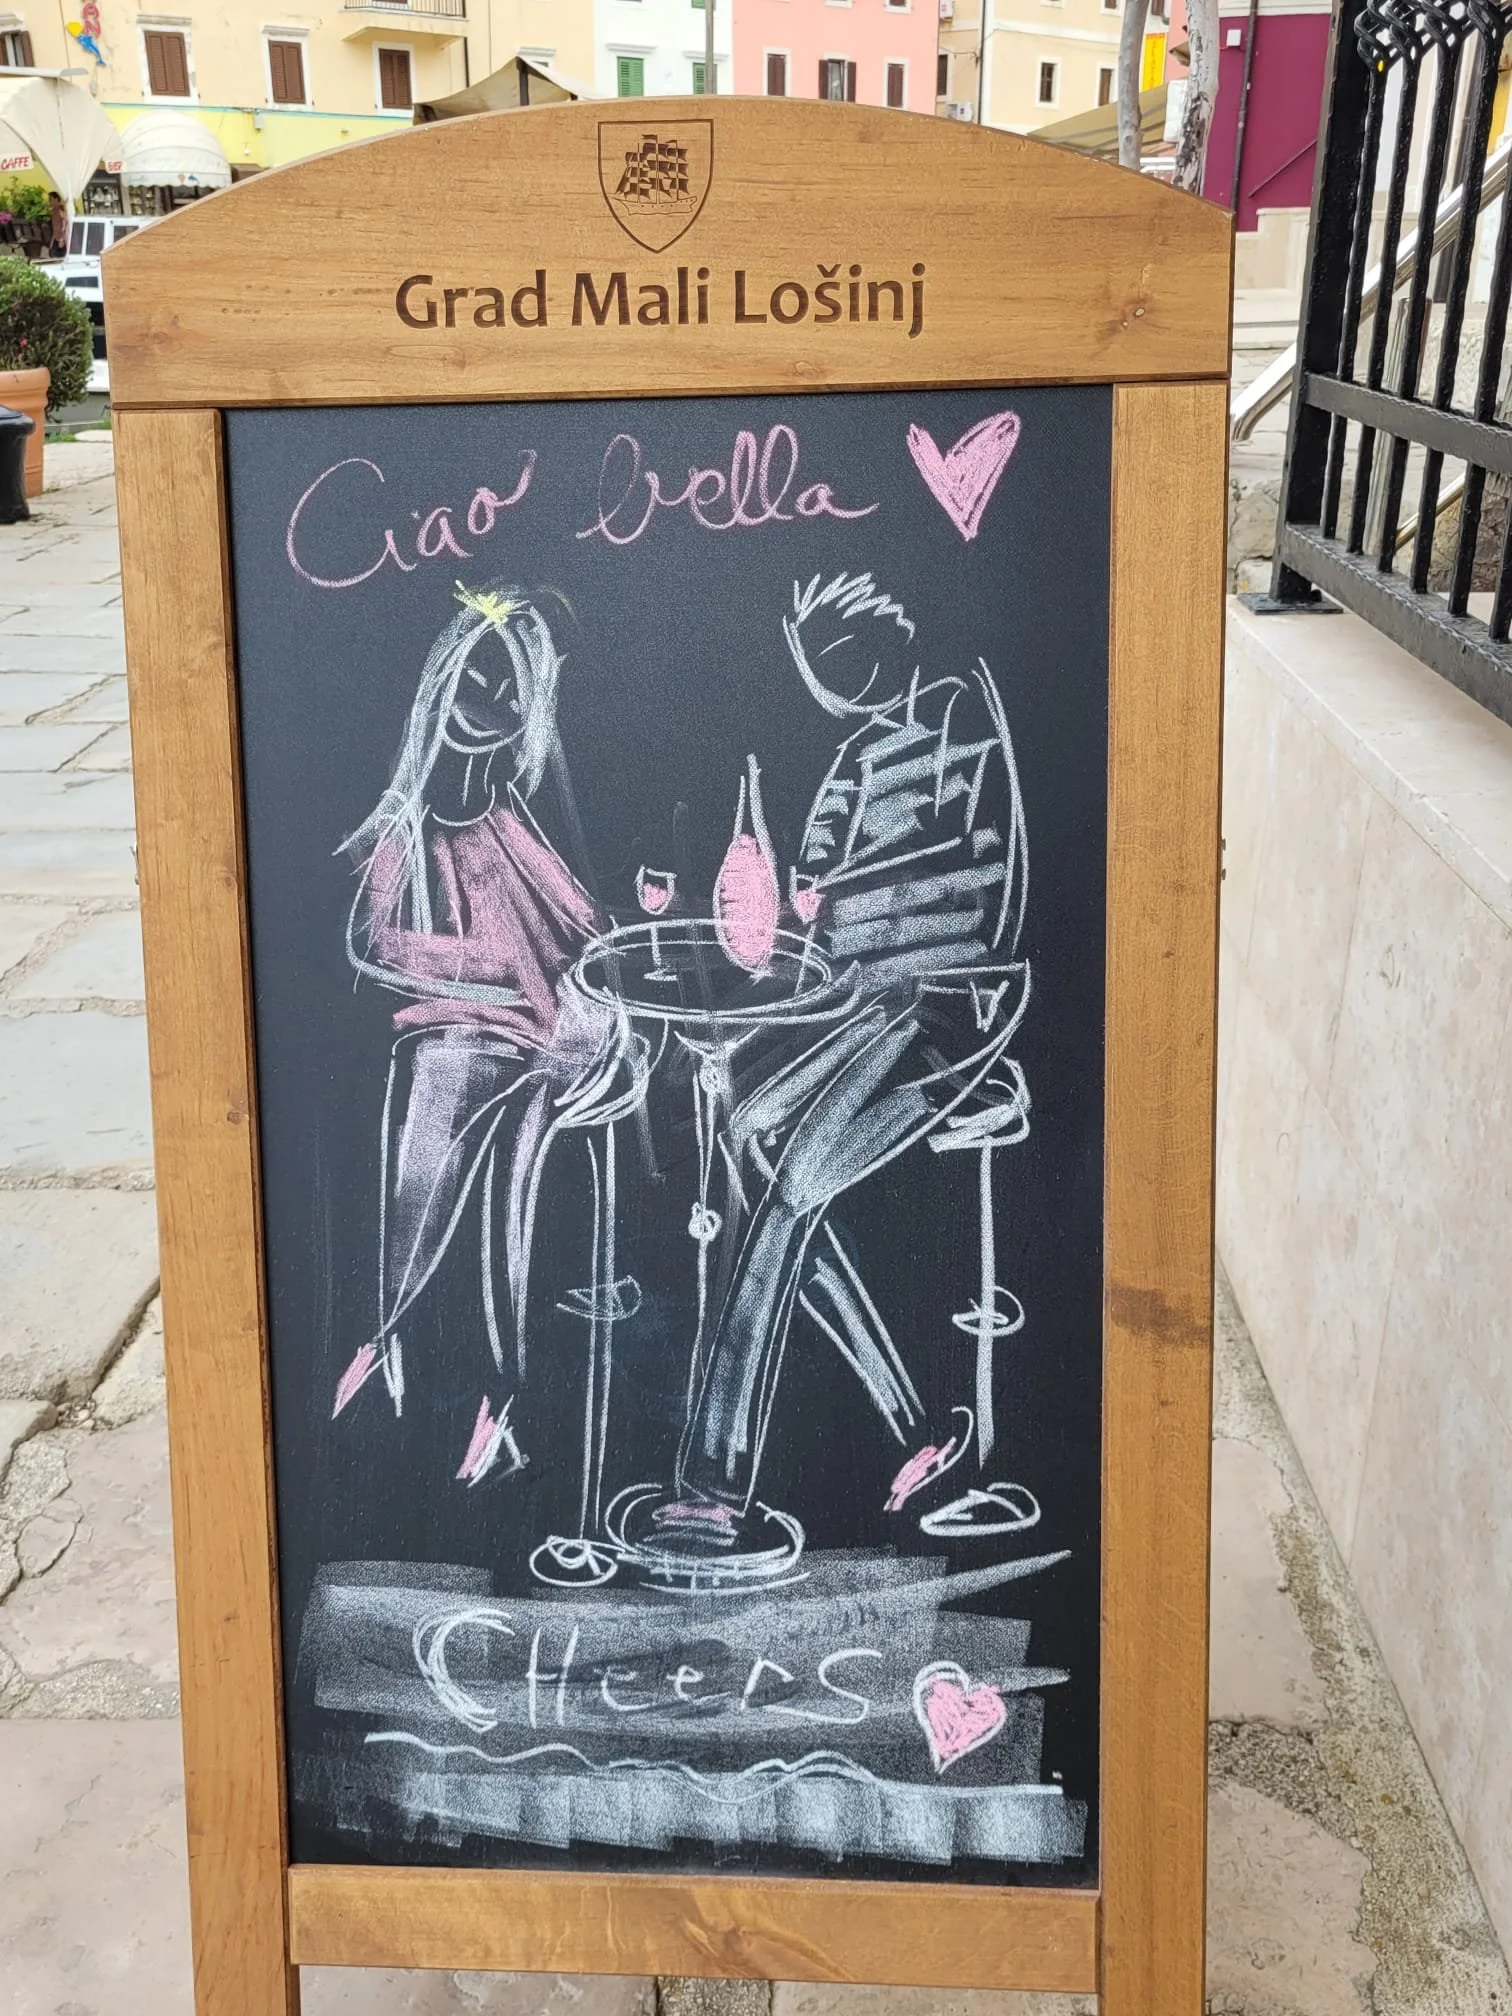 CAFFE
Grad Mali Lošinj
Ciao bella
CHeers